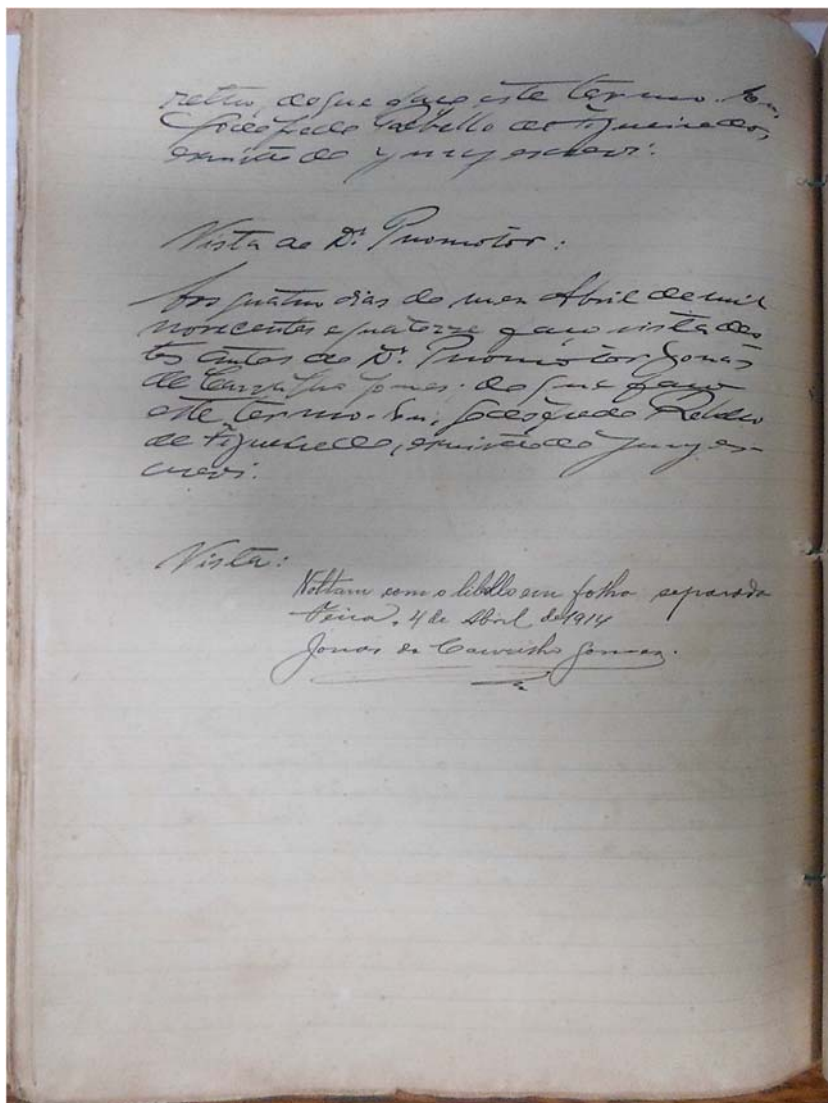 retro, do que faço este termo. Eu,
Godofredo Rabello de Figueiredo,
escrivão do jury escrevi.
Vista ao Dr. Promotor:
Aos quatro dias do mez Abril de mil
novecentos e quatorze faço vista des
tes autos ao Dr. Promotor Jonas
de Carvalho Gomes. do que faço
este termo. Eu, Godofredo Rabello
de Figueiredo, escrivão do jury es-
crevi.
Vista:
Voltam com o libello em folha separada
Feira, 4 de Abril de 1914
Jonas de Carvalho Gomes.